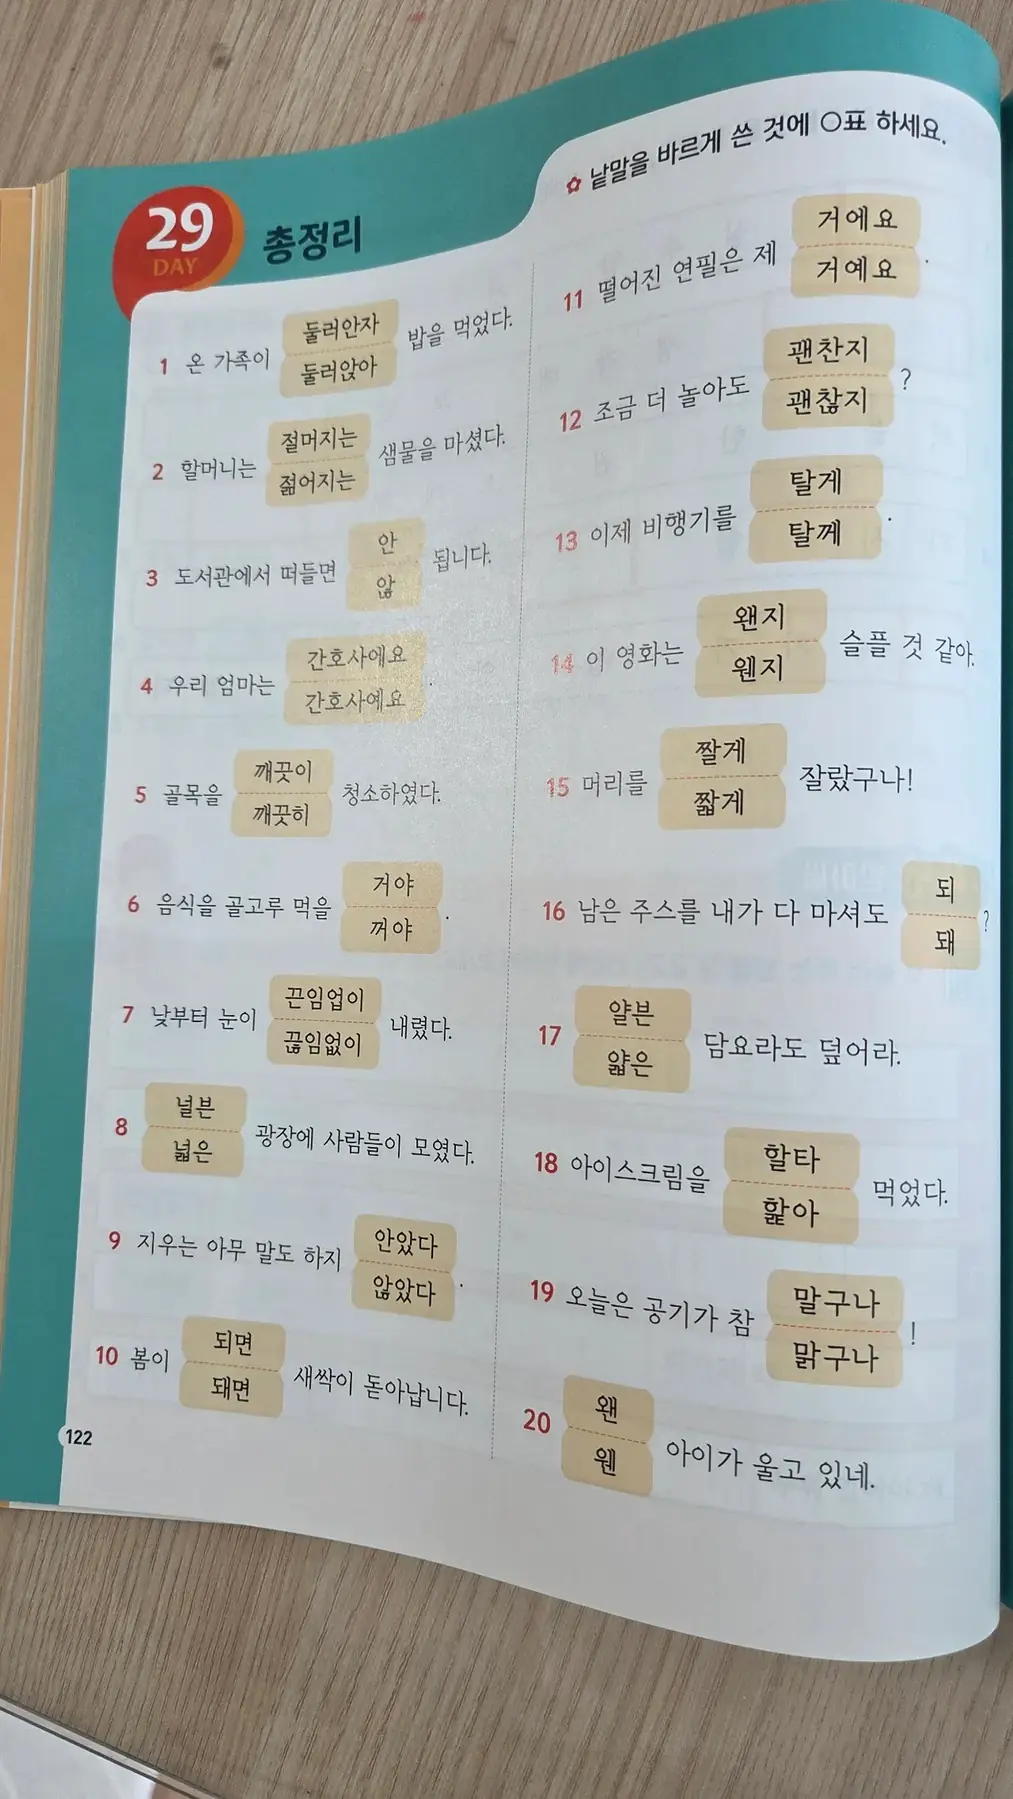 29
DAY
총정리
✿ 낱말을 바르게 쓴 것에 ○표 하세요.
1 온 가족이 둘러안자 밥을 먹었다.
둘러앉아
2 할머니는 절머지는 샘물을 마셨다.
젊어지는
3 도서관에서 떠들면 안 됩니다.
않
4 우리 엄마는 간호사에요.
간호사예요
5 골목을 깨끗이 청소하였다.
깨끗히
6 음식을 골고루 먹을 거야.
꺼야
7 낮부터 눈이 끈임업이 내렸다.
끊임없이
8 널븐 광장에 사람들이 모였다.
넓은
9 지우는 아무 말도 하지 안았다.
않았다
10 봄이 되면 새싹이 돋아납니다.
돼면
11 떨어진 연필은 제 거에요.
거예요
12 조금 더 놀아도 괜찬지?
괜찮지
13 이제 비행기를 탈게.
탈께
14 이 영화는 왠지 슬플 것 같아.
웬지
15 머리를 짤게 잘랐구나!
짧게
16 남은 주스를 내가 다 마셔도 되?
돼
17 얄븐 담요라도 덮어라.
얇은
18 아이스크림을 할타 먹었다.
핥아
19 오늘은 공기가 참 말구나!
맑구나
20 왠 아이가 울고 있네.
웬
122